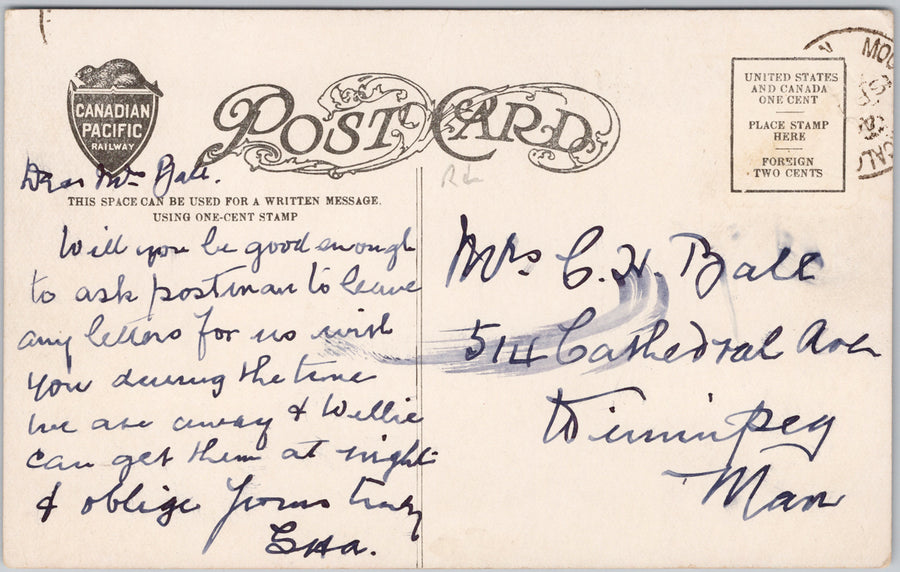 CANADIAN
PACIFIC
RAILWAY
POST CARD
UNITED STATES
AND CANADA
ONE CENT
PLACE STAMP
HERE
FOREIGN
TWO CENTS
Dear Mrs Ball.
THIS SPACE CAN BE USED FOR A WRITTEN MESSAGE.
USING ONE-CENT STAMP
Will you be good enough
to ask postman to leave
any letters for us with
you during the time
we are away & Willie
can get them at night
& oblige Yours truly
Mrs C. H. Ball
514 Cathedral Aven
Winnipeg
Man